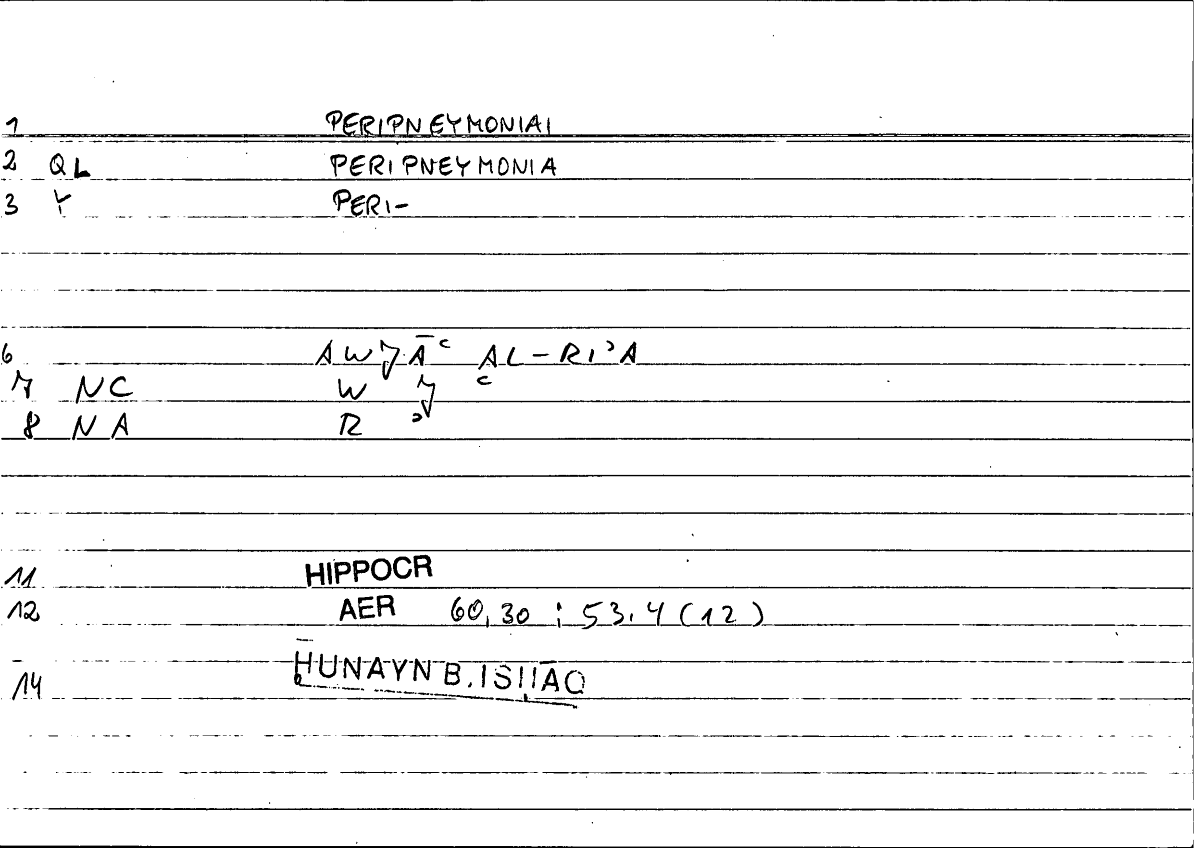 1 PERIPNEYMONIAI
2 QL PERIPNEYMONIA
3 Y PERI-
6 AWJ̌Āʿ AL-RIʾA
7 NC W J̌ ʿ
8 NA R ʾ
11 HIPPOCR
12 AER 60,30 ; 53.4 (12)
14 ḤUNAYN B. ISḤĀQ